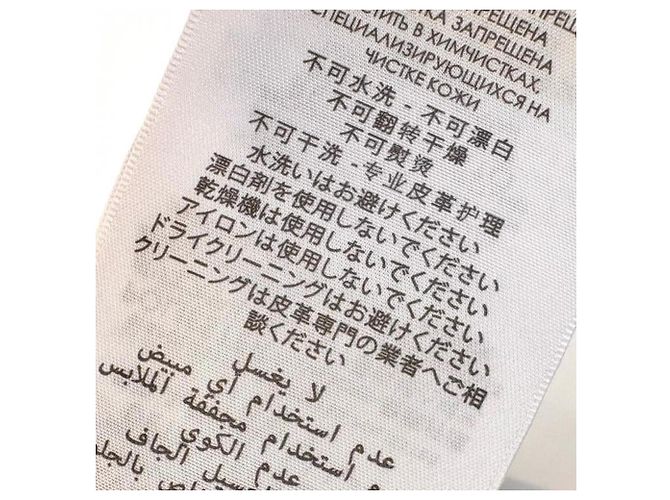 ЗАПРЕЩЕНА
ЗАПРЕЩЕНА
В ХИМЧИСТКАХ,
СПЕЦИАЛИЗИРУЮЩИХСЯ НА
ЧИСТКЕ КОЖИ
不可水洗 - 不可漂白
不可翻转干燥
不可熨烫
不可干洗 - 专业皮革护理
水洗いはお避けください
漂白剤を使用しないでください
乾燥機は使用しないでください
アイロンは使用しないでください
ドライクリーニングはお避けください
クリーニングは皮革専門の業者へご相
談ください
لا يغسل
عدم استخدام أي مبيض
عدم استخدام مجففة الملابس
عدم الكوي
الجاف